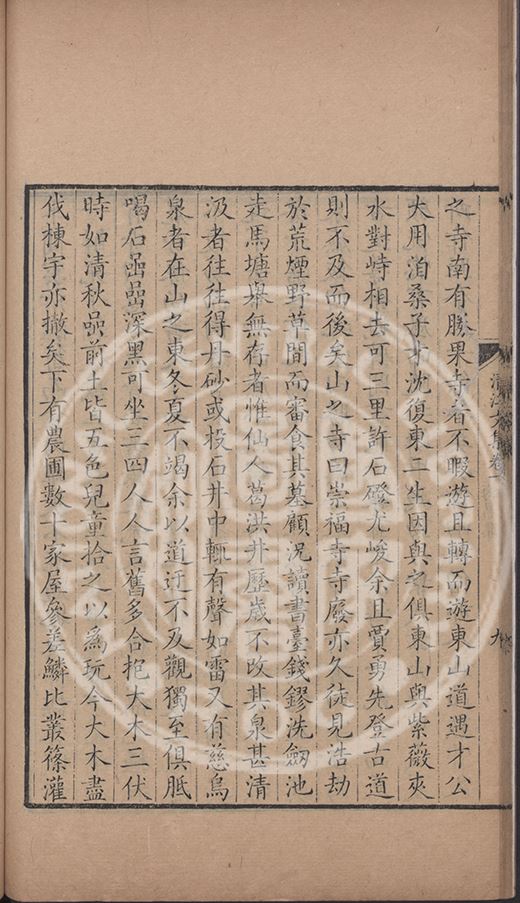 之寺南有勝果寺者不暇遊且轉而遊東山道遇才公
大用洎桑子才沈復東二生因與之俱東山與紫薇夾
水對峙相去可三里許石磴尤峻余且賈勇先登古道
則不及而後矣山之寺曰崇福寺寺廢亦久徒見浩劫
於荒煙野草間而審食其墓顧況讀書臺錢鏐洗劔池
走馬塘舉無存者惟仙人葛洪井歷歲不改其泉甚清
汲者往往得丹砂或投石井中輒有聲如雷又有慈烏
泉者在山之東冬夏不竭余以道迂不及觀獨至俱胝
喝石嵒嵒深黑可坐三四人人言舊多合抱大木三伏
時如清秋嵒前土皆五色兒童拾之以為玩今大木盡
伐棟宇亦撤矣下有農圃數十家屋參差鱗比叢篠灌
清江文集卷
九